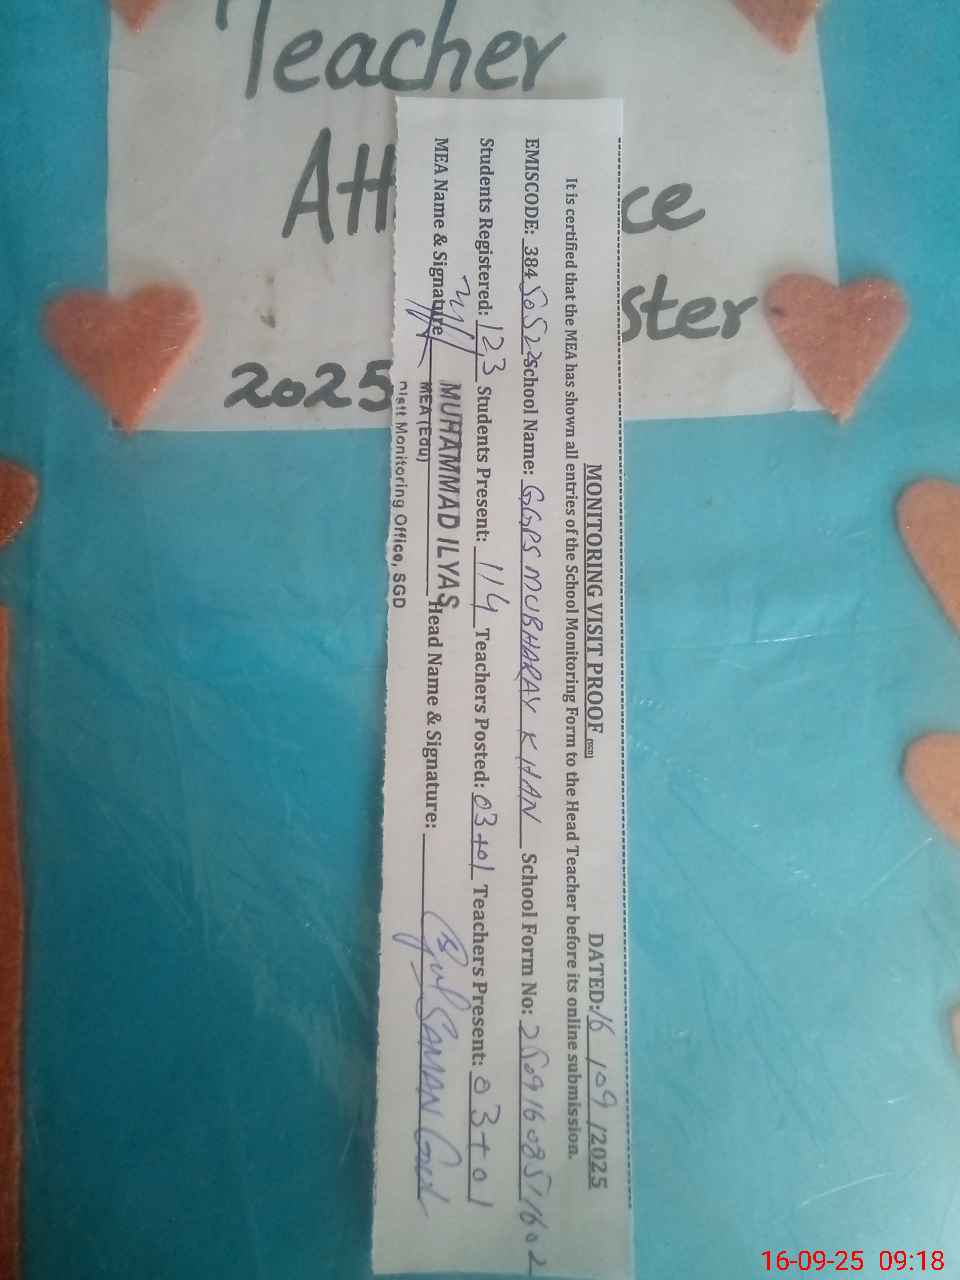 Teacher
Att ce
ster
2025
MONITORING VISIT PROOF (SGD) DATED: 16 / 09 /2025
It is certified that the MEA has shown all entries of the School Monitoring Form to the Head Teacher before its online submission.
EMISCODE: 38450522 School Name: GGPS MUBHARAY KHAN School Form No: 2509160851602
Students Registered: 123 Students Present: 114 Teachers Posted: 03+01 Teachers Present: 03+01
MEA Name & Signature MUHAMMAD ILYAS Head Name & Signature: SAMAN
MEA (Edu)
Monitoring Office, SGD
16-09-25 09:18